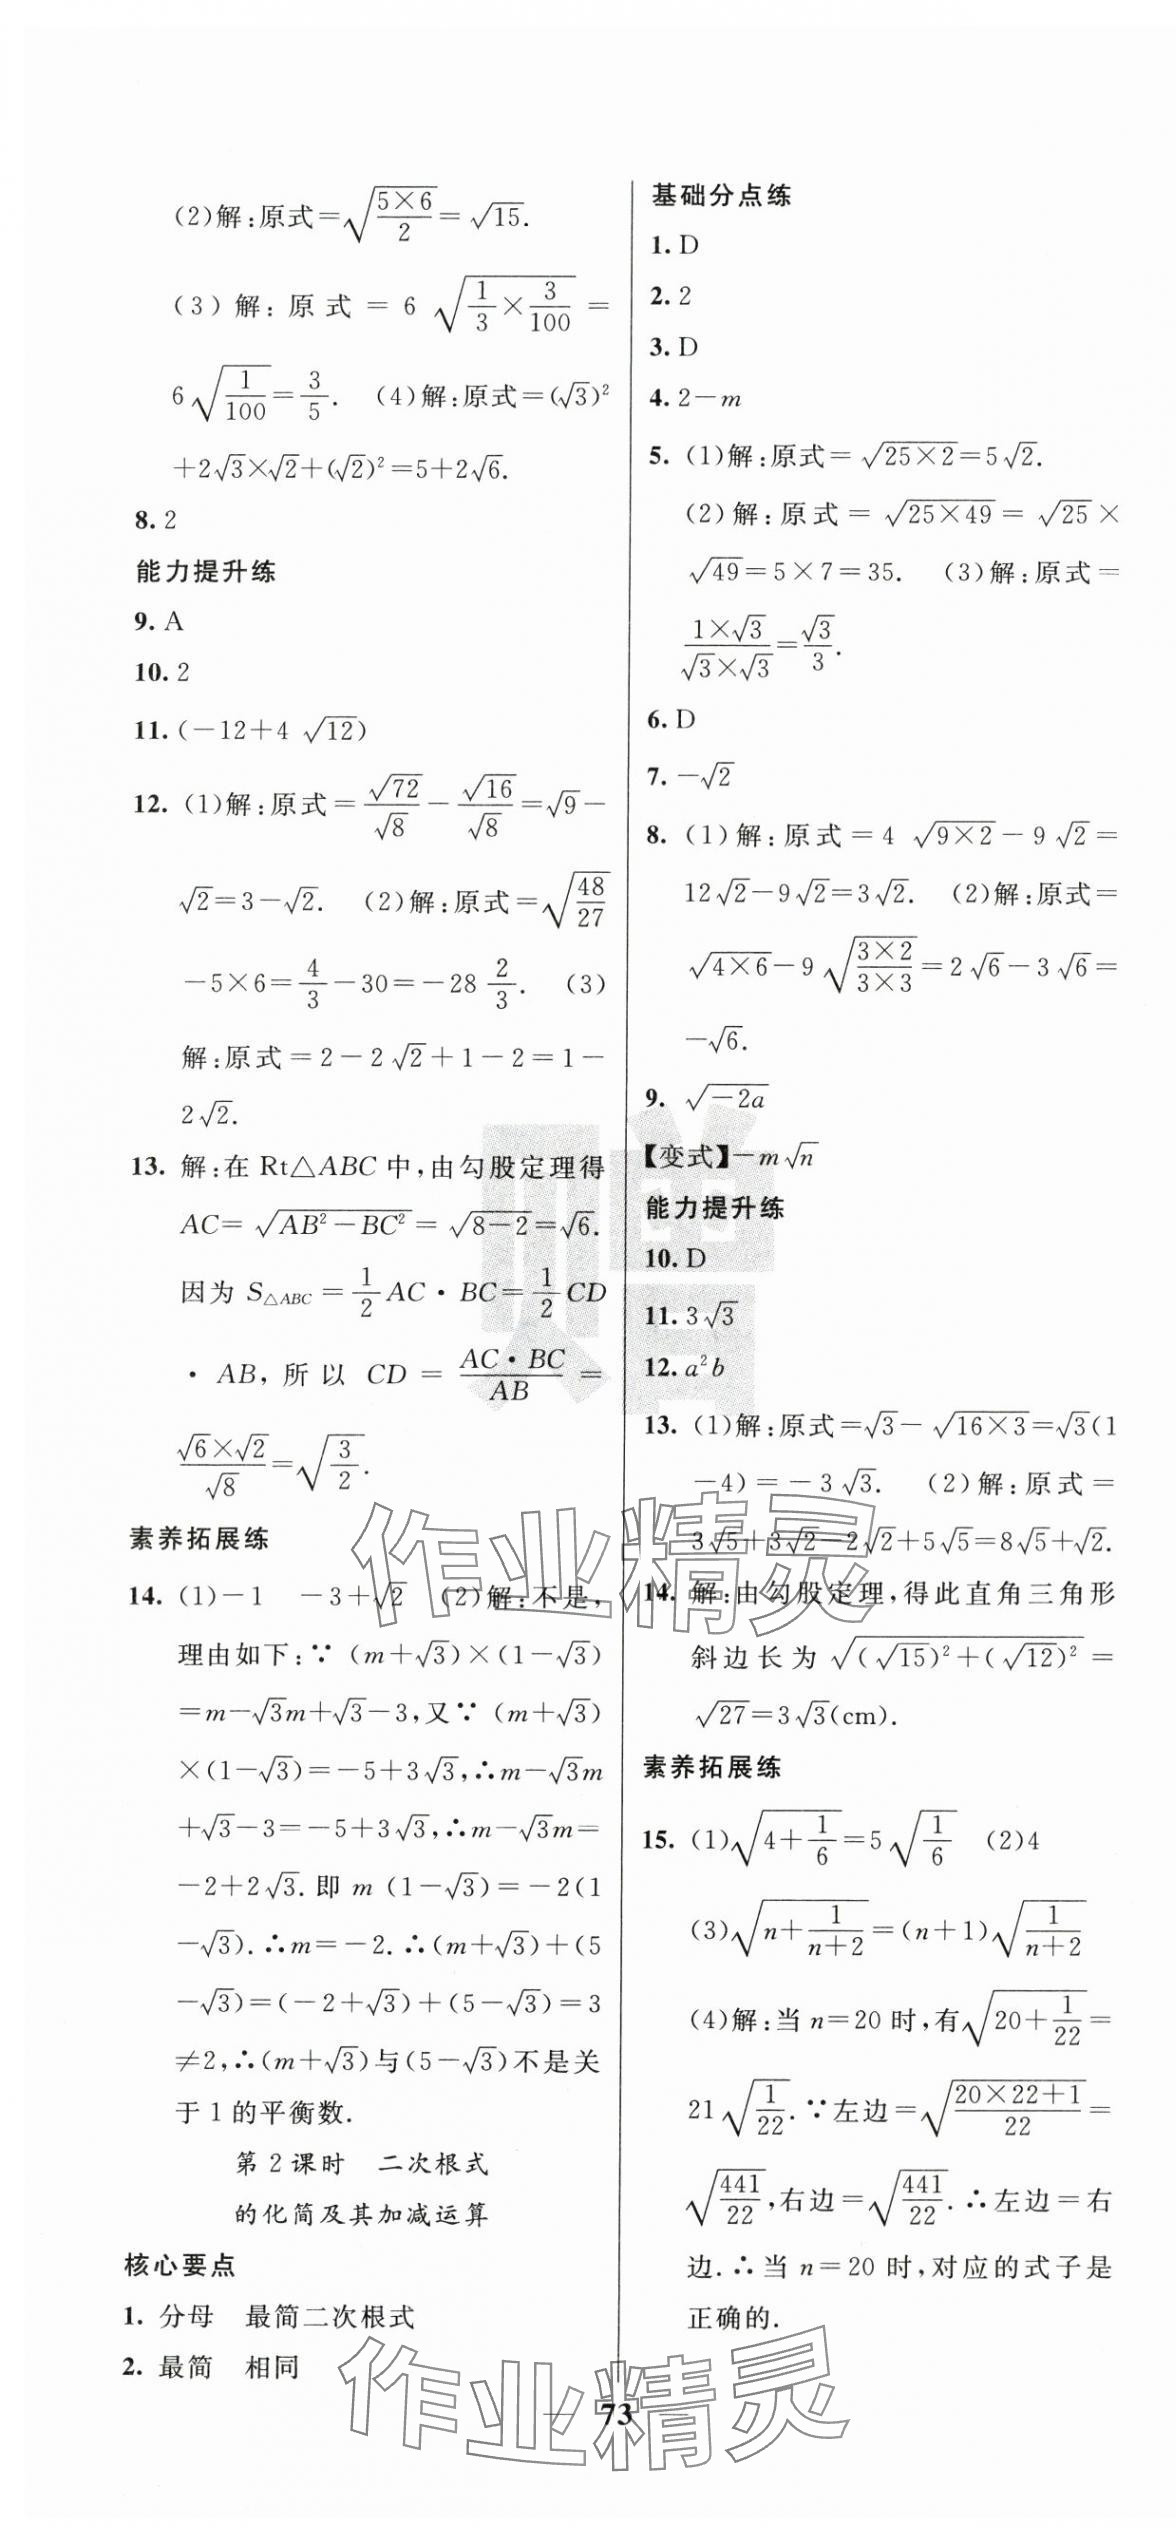 (2)解:原式=√(5×6/2)=√15.
(3)解:原式=6√(1/3×3/100)=
6√(1/100)=3/5. (4)解:原式=(√3)²
+2√3×√2+(√2)²=5+2√6.
8. 2
能力提升练
9. A
10. 2
11. (-12+4√12)
12. (1)解:原式=√72/√8-√16/√8=√9-
√2=3-√2. (2)解:原式=√(48/27)
-5×6=4/3-30=-28 2/3. (3)
解:原式=2-2√2+1-2=1-
2√2.
13. 解:在Rt△ABC中,由勾股定理得
AC=√(AB²-BC²)=√(8-2)=√6.
因为S△ABC=1/2AC·BC=1/2CD
·AB,所以CD=AC·BC/AB=
√6×√2/√8=√(3/2).
素养拓展练
14. (1)-1 -3+√2 (2)解:不是,
理由如下:∵(m+√3)×(1-√3)
=m-√3m+√3-3,又∵(m+√3)
×(1-√3)=-5+3√3,∴m-√3m
+√3-3=-5+3√3,∴m-√3m=
-2+2√3.即m(1-√3)=-2(1
-√3).∴m=-2.∴(m+√3)+(5
-√3)=(-2+√3)+(5-√3)=3
≠2,∴(m+√3)与(5-√3)不是关
于1的平衡数.
第2课时 二次根式
的化简及其加减运算
核心要点
1. 分母 最简二次根式
2. 最简 相同
基础分点练
1. D
2. 2
3. D
4. 2-m
5. (1)解:原式=√(25×2)=5√2.
(2)解:原式=√(25×49)=√25×
√49=5×7=35. (3)解:原式=
1×√3/√3×√3=√3/3.
6. D
7. -√2
8. (1)解:原式=4√(9×2)-9√2=
12√2-9√2=3√2. (2)解:原式=
√(4×6)-9√(3×2/3×3)=2√6-3√6=
-√6.
9. √(-2a)
【变式】-m√n
能力提升练
10. D
11. 3√3
12. a²b
13. (1)解:原式=√3-√(16×3)=√3(1
-4)=-3√3. (2)解:原式=
3√5+3√2-2√2+5√5=8√5+√2.
14. 解:由勾股定理,得此直角三角形
斜边长为√((√15)²+(√12)²)=
√27=3√3(cm).
素养拓展练
15. (1)√(4+1/6)=5√(1/6) (2)4
(3)√(n+1/(n+2))=(n+1)√(1/(n+2))
(4)解:当n=20时,有√(20+1/22)=
21√(1/22).∵左边=√((20×22+1)/22)=
√(441/22),右边=√(441/22).∴左边=右
边.∴当n=20时,对应的式子是
正确的.
赠
作业精灵
作业精灵
73